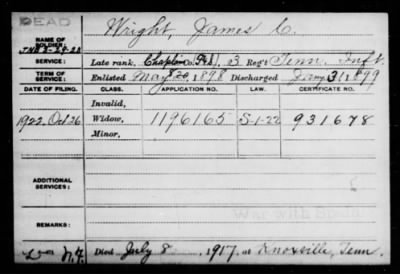 DEAD
NAME OF SOLDIER: Wright, James C.
SERVICE: Late rank, Chaplin Co. F&S, 3 Reg't Tenn. Inft.
TERM OF SERVICE: Enlisted May 20, 1898 Discharged Jany 31, 1899
DATE OF FILING. CLASS. APPLICATION NO. LAW. CERTIFICATE NO.
Invalid,
1922. Oct 26 Widow, 1196165 S-1-22 931678
Minor,
ADDITIONAL SERVICES:
War with Spain
REMARKS:
Died July 8 1917, at Knoxville, Tenn.